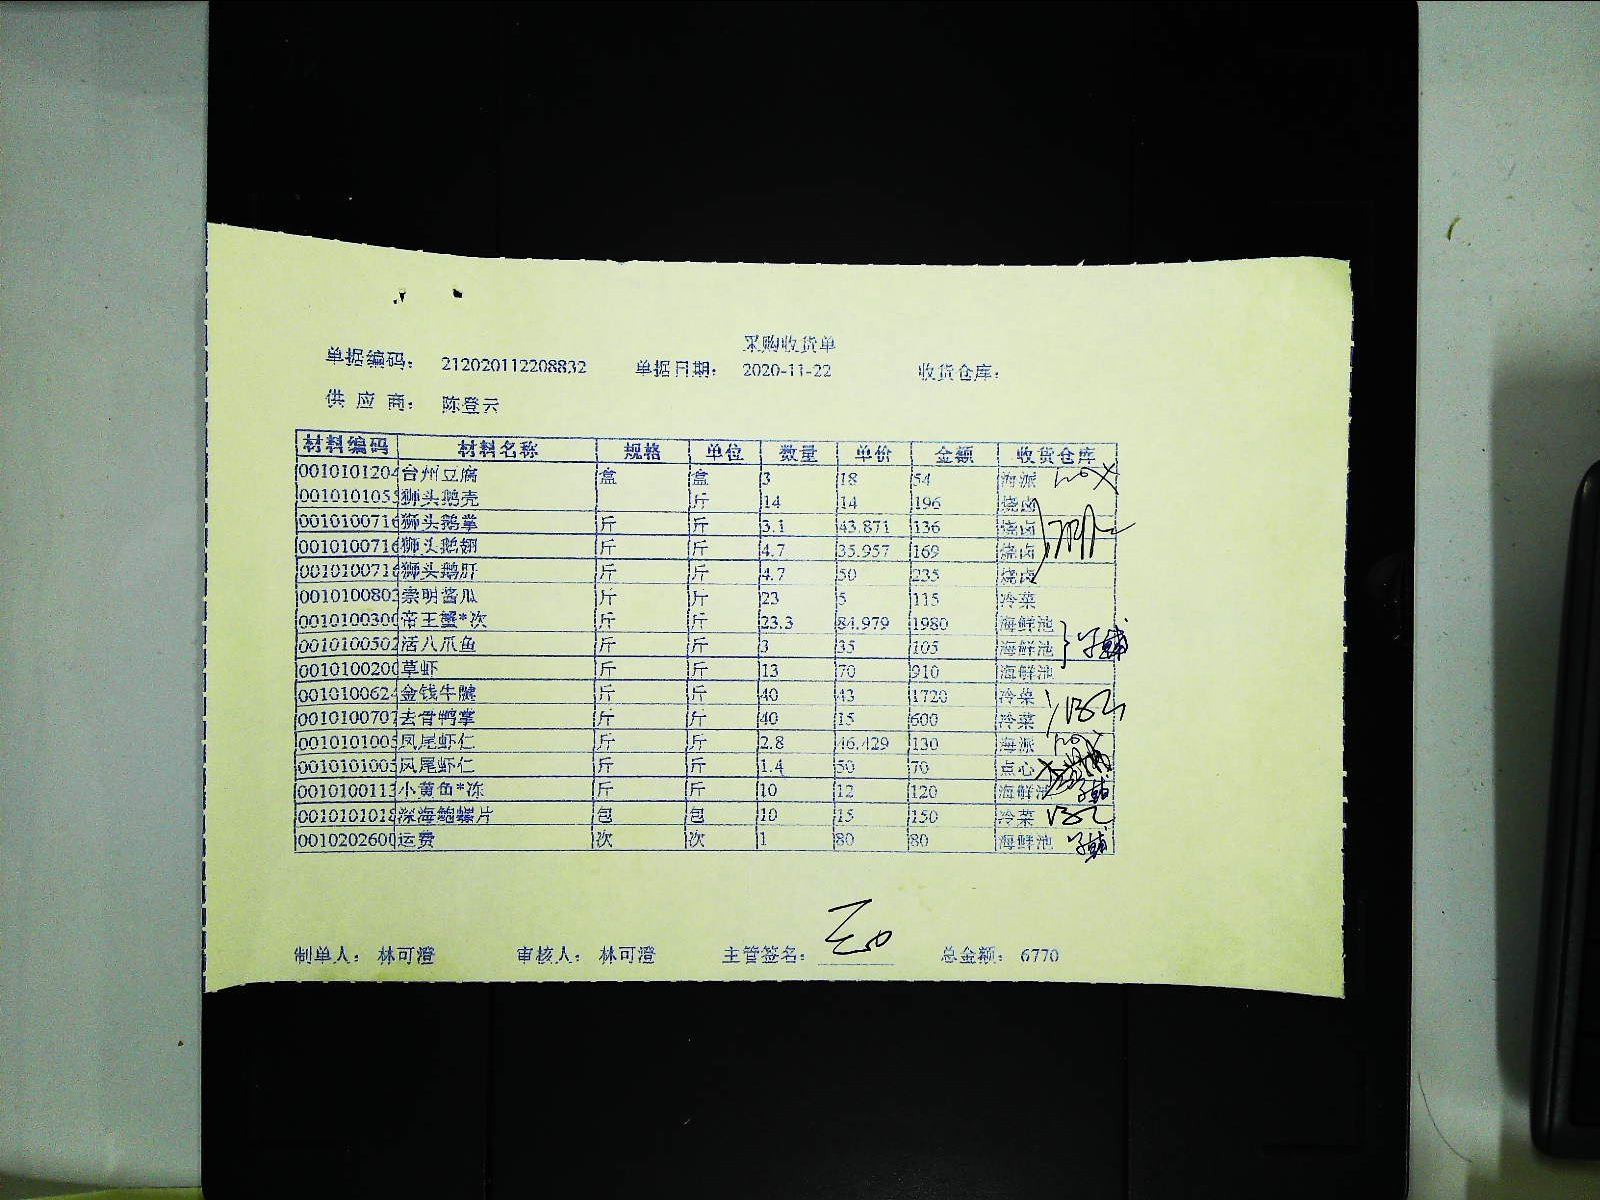 采购收货单
单据编码： 212020112208832 单据日期： 2020-11-22 收货仓库：
供 应 商： 陈登云
材料编码 材料名称 规格 单位 数量 单价 金额 收货仓库
0010101204 台州豆腐 盒 盒 3 18 54 海派
0010101055 狮头鹅壳 斤 14 14 196 烧卤
0010100716 狮头鹅掌 斤 斤 3.1 43.871 136 烧卤
0010100716 狮头鹅翅 斤 斤 4.7 35.957 169 烧卤
0010100716 狮头鹅肝 斤 斤 4.7 50 235 烧卤
0010100803 崇明酱瓜 斤 斤 23 5 115 冷菜
0010100300 帝王蟹*次 斤 斤 23.3 84.979 1980 海鲜池
0010100502 活八爪鱼 斤 斤 3 35 105 海鲜池
0010100200 草虾 斤 斤 13 70 910 海鲜池
0010100624 金钱牛腱 斤 斤 40 43 1720 冷菜
0010100707 去骨鸭掌 斤 斤 40 15 600 冷菜
0010101005 凤尾虾仁 斤 斤 2.8 46.429 130 海派
0010101005 凤尾虾仁 斤 斤 1.4 50 70 点心
0010100113 小黄鱼*冻 斤 斤 10 12 120 海鲜池
0010101018 深海鲍螺片 包 包 10 15 150 冷菜
0010202600 运费 次 次 1 80 80 海鲜池
制单人： 林可澄 审核人： 林可澄 主管签名： 总金额： 6770